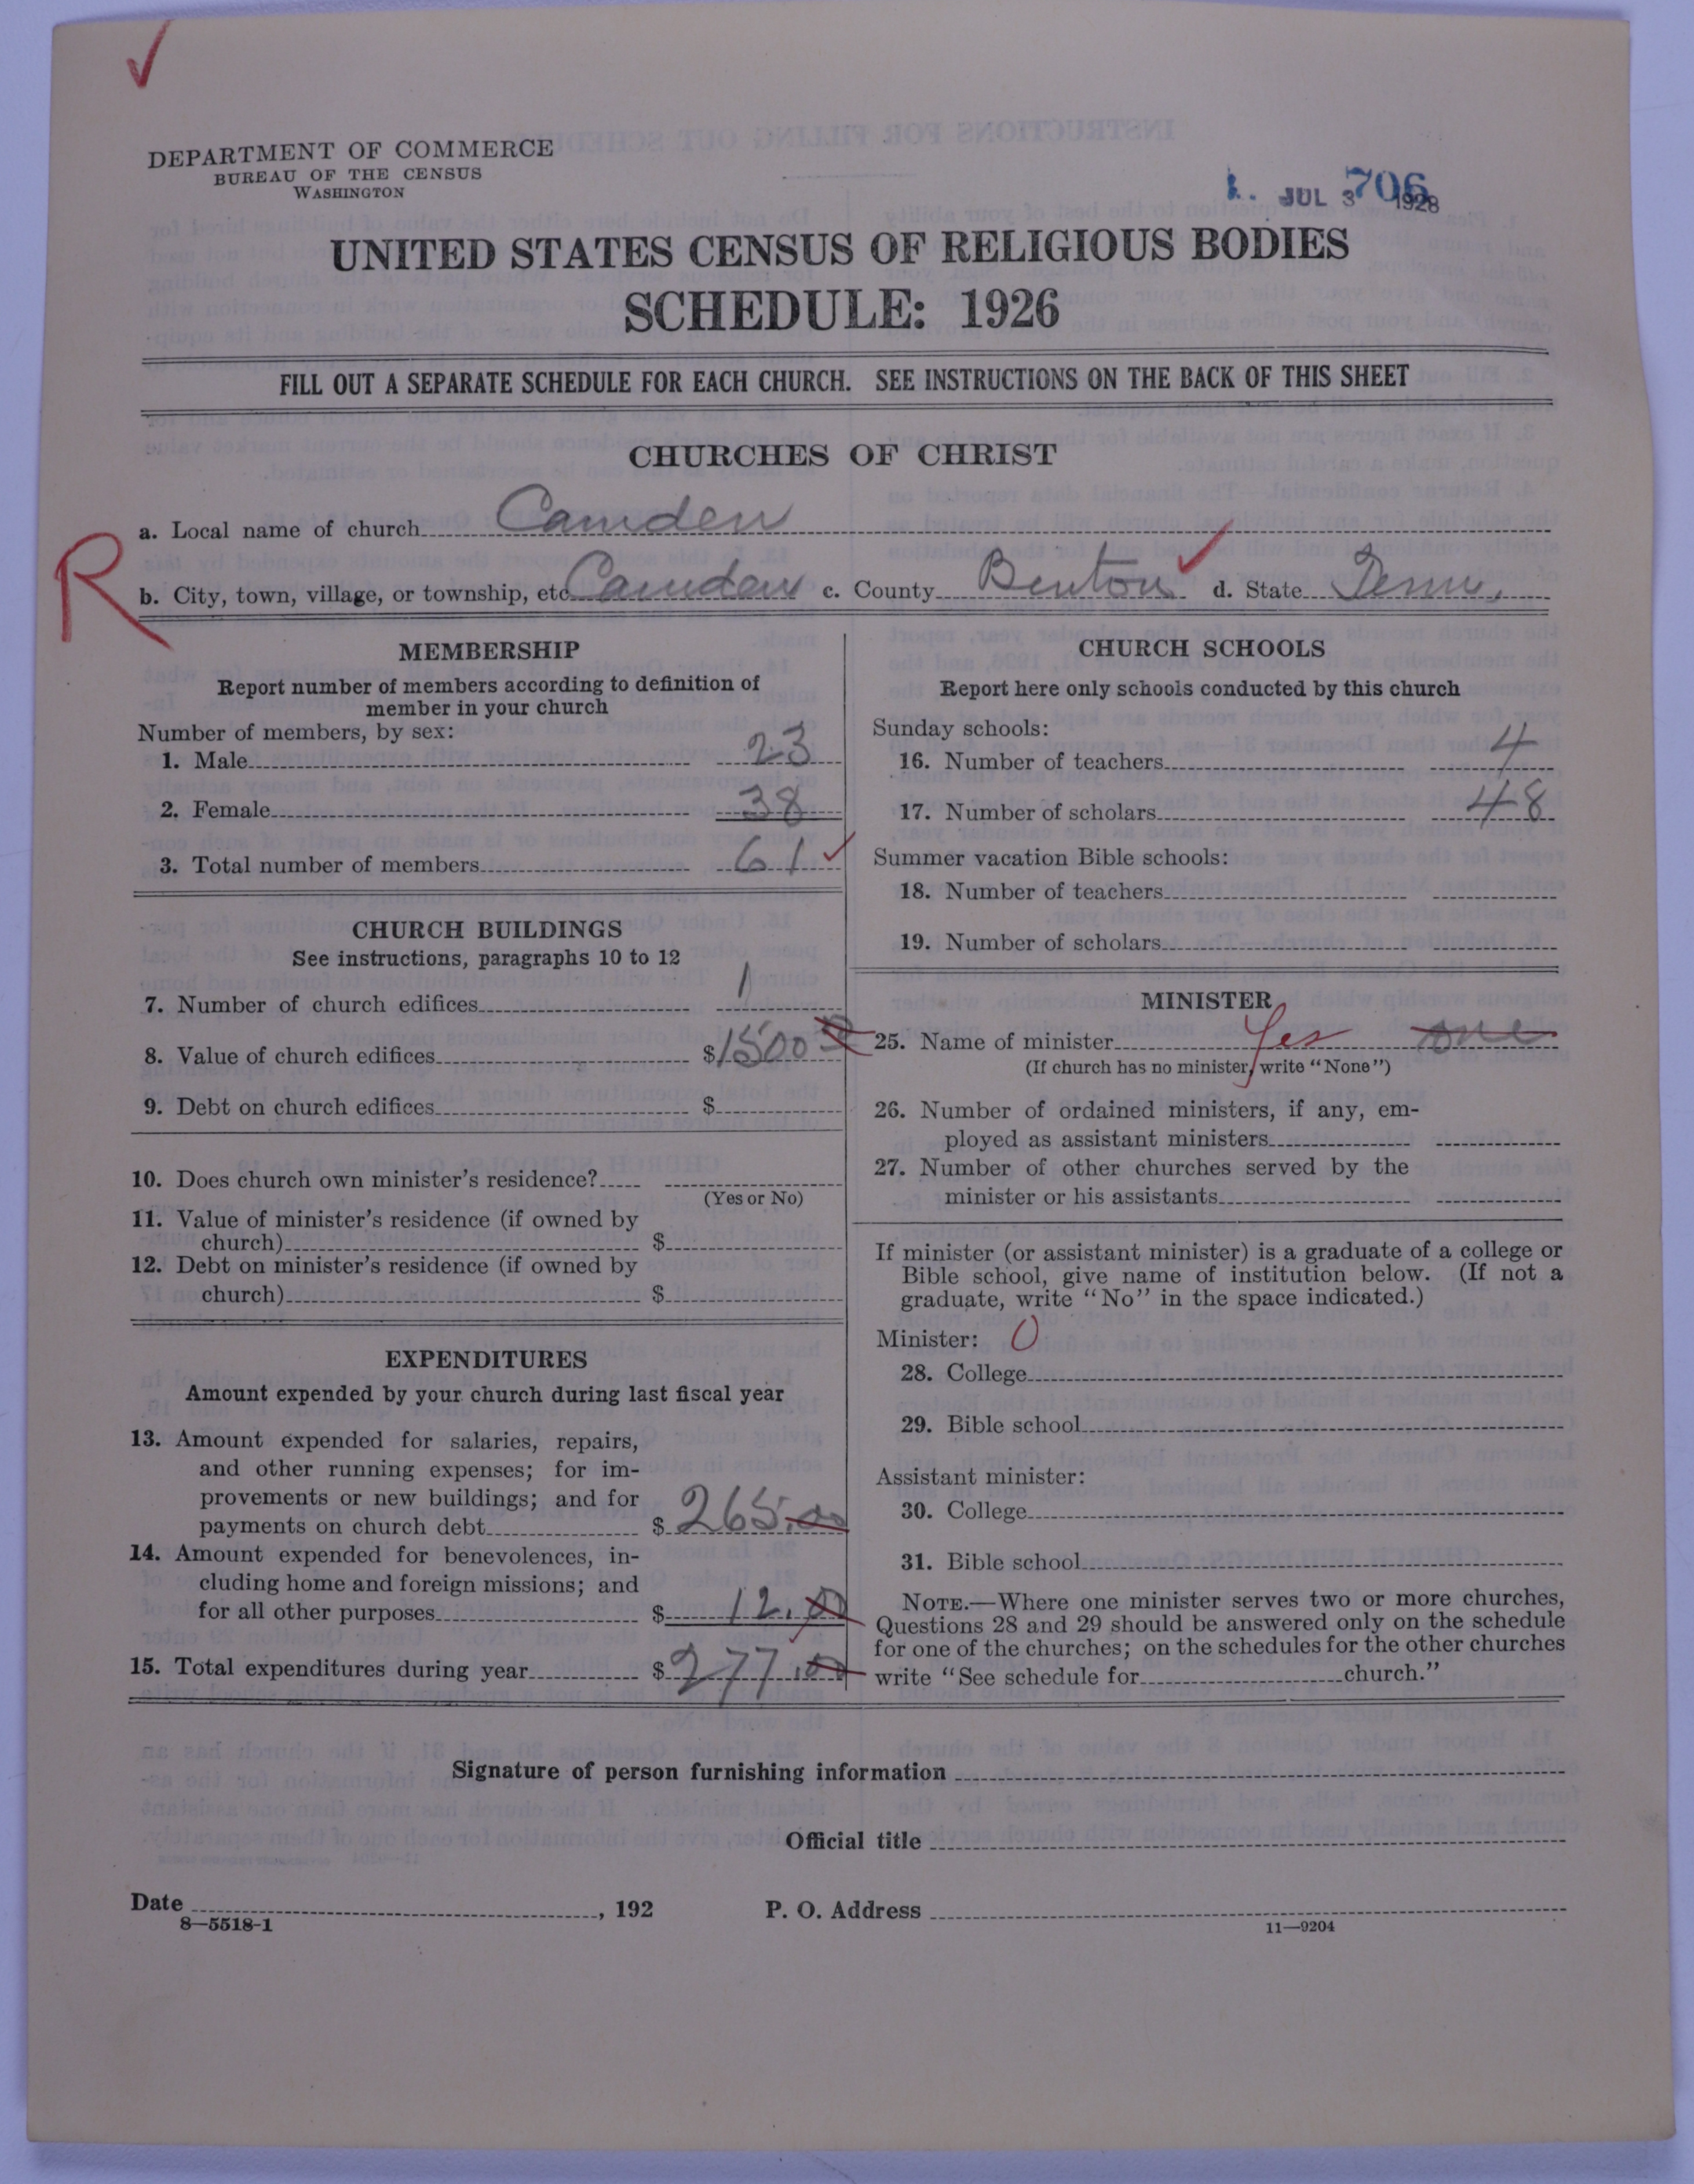 DEPARTMENT OF COMMERCE
BUREAU OF THE CENSUS
WASHINGTON
JUL 3 1928
706
UNITED STATES CENSUS OF RELIGIOUS BODIES
SCHEDULE: 1926
FILL OUT A SEPARATE SCHEDULE FOR EACH CHURCH. SEE INSTRUCTIONS ON THE BACK OF THIS SHEET
CHURCHES OF CHRIST
a. Local name of church Camden
R
b. City, town, village, or township, etc. Camden c. County Benton d. State Tenn.
MEMBERSHIP
Report number of members according to definition of
member in your church
Number of members, by sex:
1. Male 23
2. Female 38
3. Total number of members 61
CHURCH BUILDINGS
See instructions, paragraphs 10 to 12
7. Number of church edifices 1
8. Value of church edifices $1500
9. Debt on church edifices $
10. Does church own minister's residence?
(Yes or No)
11. Value of minister's residence (if owned by
church) $
12. Debt on minister's residence (if owned by
church) $
EXPENDITURES
Amount expended by your church during last fiscal year
13. Amount expended for salaries, repairs,
and other running expenses; for im-
provements or new buildings; and for
payments on church debt $265.00
14. Amount expended for benevolences, in-
cluding home and foreign missions; and
for all other purposes $12.00
15. Total expenditures during year $277.00
CHURCH SCHOOLS
Report here only schools conducted by this church
Sunday schools:
16. Number of teachers 4
17. Number of scholars 48
Summer vacation Bible schools:
18. Number of teachers
19. Number of scholars
MINISTER
25. Name of minister Yes one
(If church has no minister, write "None")
26. Number of ordained ministers, if any, em-
ployed as assistant ministers
27. Number of other churches served by the
minister or his assistants
If minister (or assistant minister) is a graduate of a college or
Bible school, give name of institution below. (If not a
graduate, write "No" in the space indicated.)
Minister: 0
28. College
29. Bible school
Assistant minister:
30. College
31. Bible school
NOTE.—Where one minister serves two or more churches,
Questions 28 and 29 should be answered only on the schedule
for one of the churches; on the schedules for the other churches
write "See schedule for church."
Signature of person furnishing information
Official title
Date , 192 P. O. Address
8—5518-1 11—9204